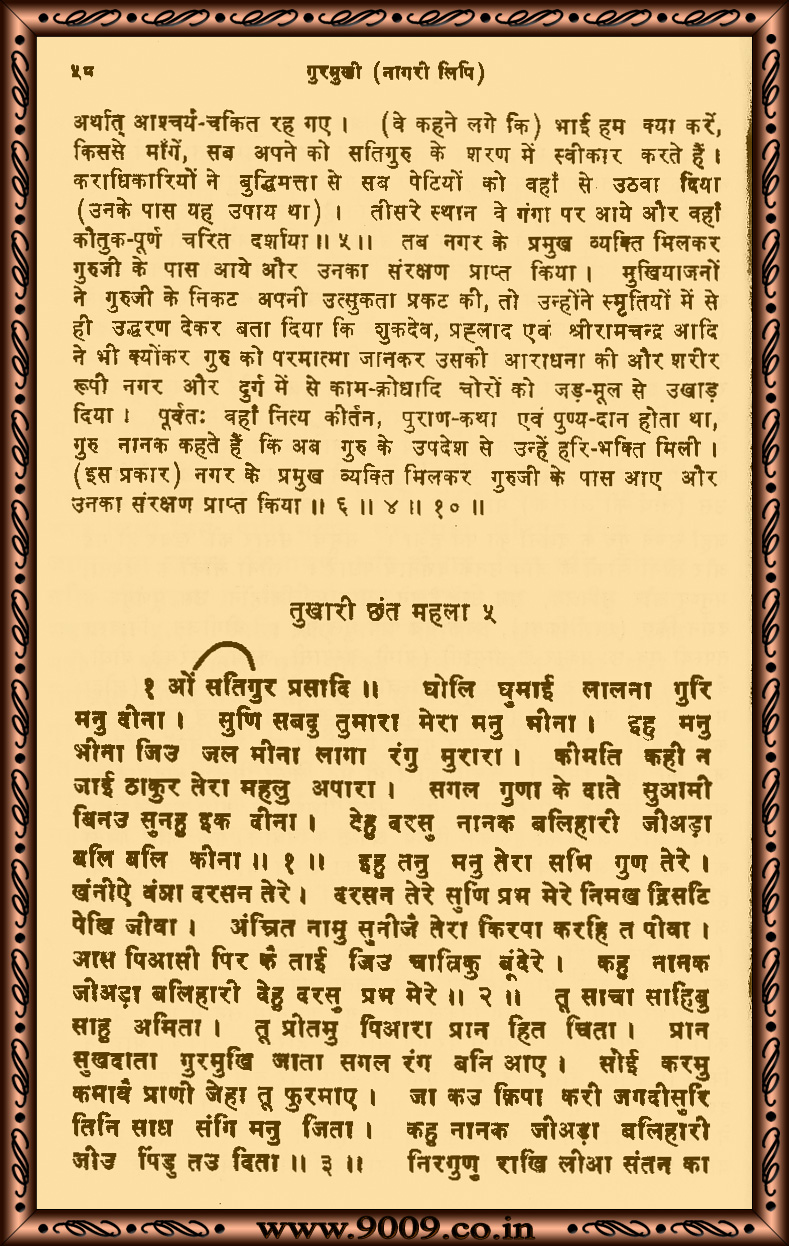 ५८ गुरमुखी (नागरी लिपि)
अर्थात् आश्चर्य-चकित रह गए । (वे कहने लगे कि) भाई हम क्या करें,
किससे माँगें, सब अपने को सतिगुरु के शरण में स्वीकार करते हैं ।
कराधिकारियों ने बुद्धिमत्ता से सब पेटियों को वहाँ से उठवा दिया
(उनके पास यह उपाय था) । तीसरे स्थान वे गंगा पर आये और वहाँ
कौतुक-पूर्ण चरित दर्शाया ॥ ५ ॥ तब नगर के प्रमुख व्यक्ति मिलकर
गुरुजी के पास आये और उनका संरक्षण प्राप्त किया । मुखियाजनों
ने गुरुजी के निकट अपनी उत्सुकता प्रकट की, तो उन्होंने स्मृतियों में से
ही उद्धरण देकर बता दिया कि शुकदेव, प्रह्लाद एवं श्रीरामचन्द्र आदि
ने भी क्योंकर गुरु को परमात्मा जानकर उसकी आराधना की और शरीर
रूपी नगर और दुर्ग में से काम-क्रोधादि चोरों को जड़-मूल से उखाड़
दिया । पूर्वतः वहाँ नित्य कीर्तन, पुराण-कथा एवं पुण्य-दान होता था,
गुरु नानक कहते हैं कि अब गुरु के उपदेश से उन्हें हरि-भक्ति मिली ।
(इस प्रकार) नगर के प्रमुख व्यक्ति मिलकर गुरुजी के पास आए और
उनका संरक्षण प्राप्त किया ॥ ६ ॥ ४ ॥ १० ॥
तुखारी छंत महला ५
१ ओं सतिगुर प्रसादि ॥ घोलि घुमाई लालना गुरि
मनु दीना । सुणि सबदु तुमारा मेरा मनु भीना । इहु मनु
भीना जिउ जल मीना लागा रंगु मुरारा । कीमति कही न
जाई ठाकुर तेरा महलु अपारा । सगल गुणा के दाते सुआमी
बिनउ सुनहु इक दीना । देहु दरसु नानक बलिहारी जीअड़ा
बलि बलि कीना ॥ १ ॥ इहु तनु मनु तेरा सभि गुण तेरे ।
खंनीऐ वंञा दरसन तेरे । दरसन तेरे सुणि प्रभ मेरे निमख द्रिसटि
पेखि जीवा । अंम्रित नामु सुनीजै तेरा किरपा करहि त पीवा ।
आस पिआसी पिर कै ताई जिउ चात्रिकु बूंदेरे । कहु नानक
जीअड़ा बलिहारी देहु दरसु प्रभ मेरे ॥ २ ॥ तू साचा साहिबु
साहु अमिता । तू प्रीतमु पिआरा प्रान हित चिता । प्रान
सुखदाता गुरमुखि जाता सगल रंग बनि आए । सोई करमु
कमावै प्राणी जेहा तू फुरमाए । जा कउ क्रिपा करी जगदीसुरि
तिनि साध संगि मनु जिता । कहु नानक जीअड़ा बलिहारी
जीउ पिंडु तउ दिता ॥ ३ ॥ निरगुणु राखि लीआ संतन का
www.9009.co.in